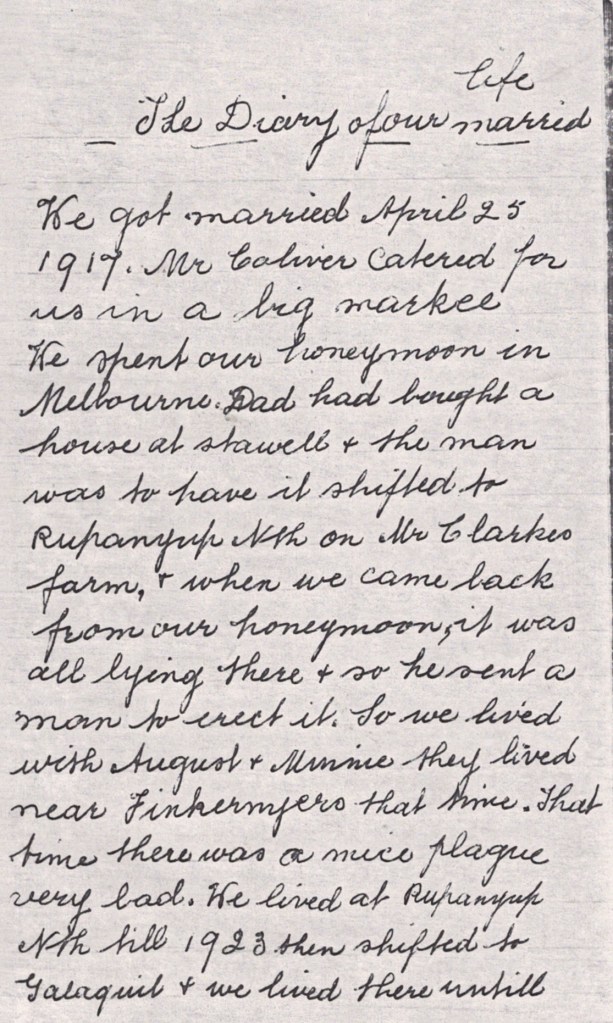 life
The Diary of our married
We got married April 25
1917. Mr Coliver Catered for
us in a big markee
We spent our honeymoon in
Melbourne. Dad had bought a
house at stawell & the man
was to have it shifted to
Rupanyup Nth on Mr Clarkes
farm, & when we came back
from our honeymoon, it was
all lying there & so he sent a
man to erect it. So we lived
with August & Minnie they lived
near Finkernyers that time. That
time there was a mice plague
very bad. We lived at Rupanyup
Nth till 1923 then shifted to
Galaquil & we lived there untill